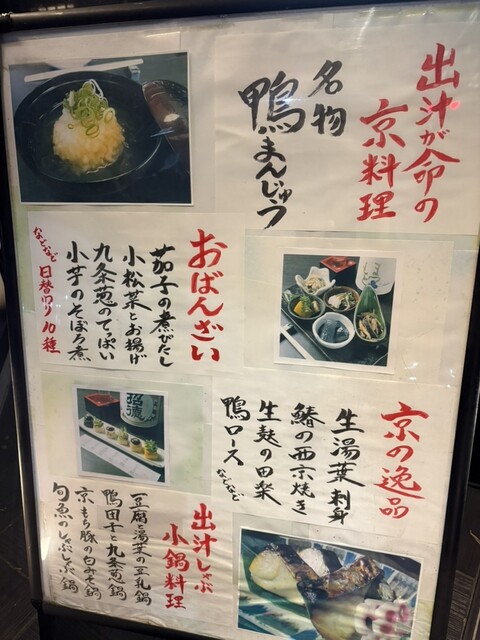 出汁が命の
京料理
名物
鴨まんじゅう
おばんざい
茄子の煮びたし
小松菜とお揚げ
九条葱のてっぱい
小芋のそぼろ煮
などなど日替わり10種
京の逸品
生湯葉刺身
鰆の西京焼き
生麩の田楽
鴨ロース
などなど
出汁しゃぶ
小鍋料理
豆腐と湯葉の豆乳鍋
鴨団子と九条葱鍋
京もち豚の白みそ鍋
旬魚のしゃぶしゃぶ鍋
招德